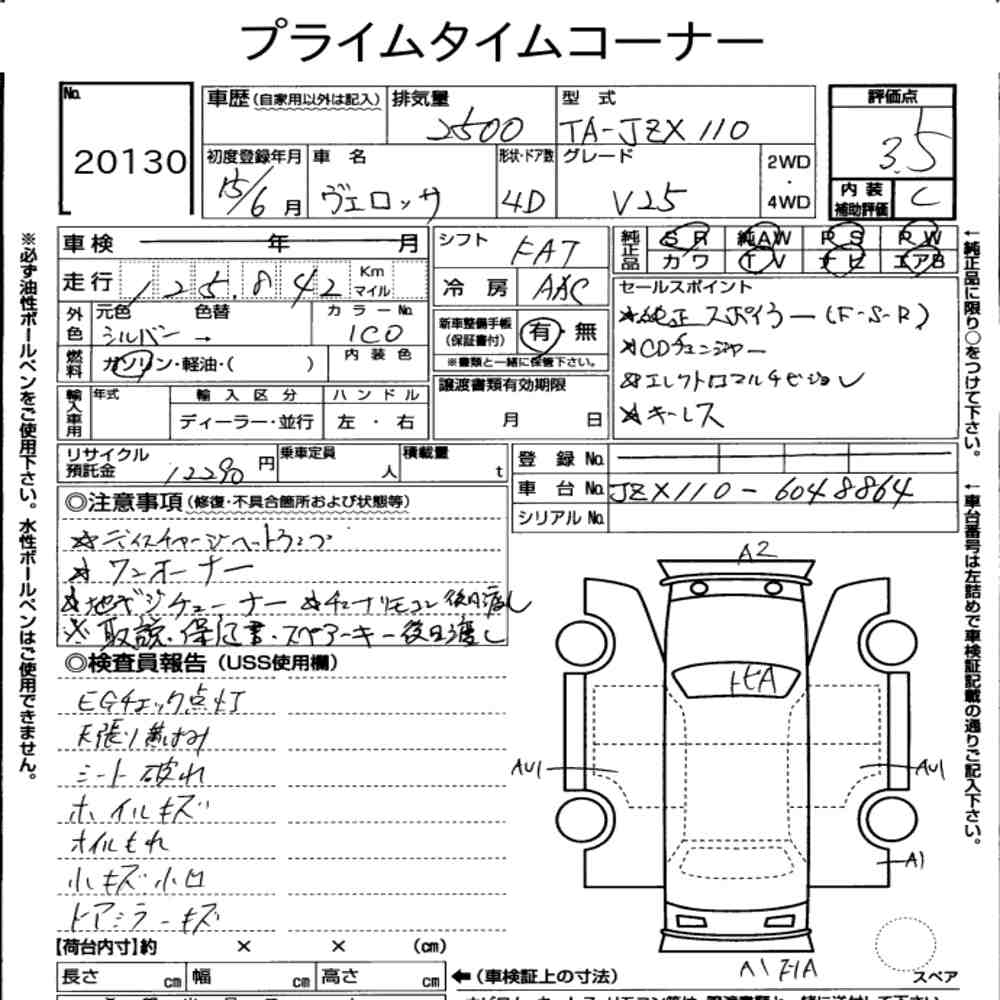 プライムタイムコーナー
No. 20130
車歴(自家用以外は記入) 排気量 2500 型式 TA-JZX110
評価点 3.5
初度登録年月 15/6月 車名 ヴェロッサ 形状・ドア数 4D グレード V25 2WD・4WD
内装補助評価 C
車検 年 月
走行 125,842 Km マイル
外色 元色 シルバー → 色替 カラーNo. 1C0
燃料 ガソリン・軽油・( ) 内装色
輸入車用 年式 輸入区分 ディーラー・並行 ハンドル 左・右
シフト FAT
冷房 AAC
新車整備手帳(保証書付) 有・無
※書類と一緒に保管下さい。
譲渡書類有効期限 月 日
純正品 SR 純AW PS PW
カワ TV ナビ エアB
セールスポイント
☆純正スポイラー(F-S-R)
☆CDチェンジャー
☆エレクトロマルチビジョン
☆キーレス
リサイクル預託金 12290円 乗車定員 人 積載量 t
登録No.
車台No. JZX110-6048864
シリアルNo.
◎注意事項(修復・不具合箇所および状態等)
☆ディスチャージヘットランプ
☆ワンオーナー
☆地デジチューナー ☆チューナリモコン後日渡し
※取説・保証書・スペアーキー後日渡し
◎検査員報告(USS使用欄)
EGチェック点灯
天張り黄ばみ
シート破れ
ホイルキズ
オイルもれ
小キズ小凹
ドアミラーキズ
【荷台内寸】約 × × (cm)
長さ cm 幅 cm 高さ cm
←(車検証上の寸法)
A2
トビA
AU1
AU1
A1
スペア
※必ず油性ボールペンをご使用下さい。水性ボールペンはご使用できません。
←純正品に限り○をつけて下さい。
←車台番号は左詰めで車検証記載の通りご記入下さい。